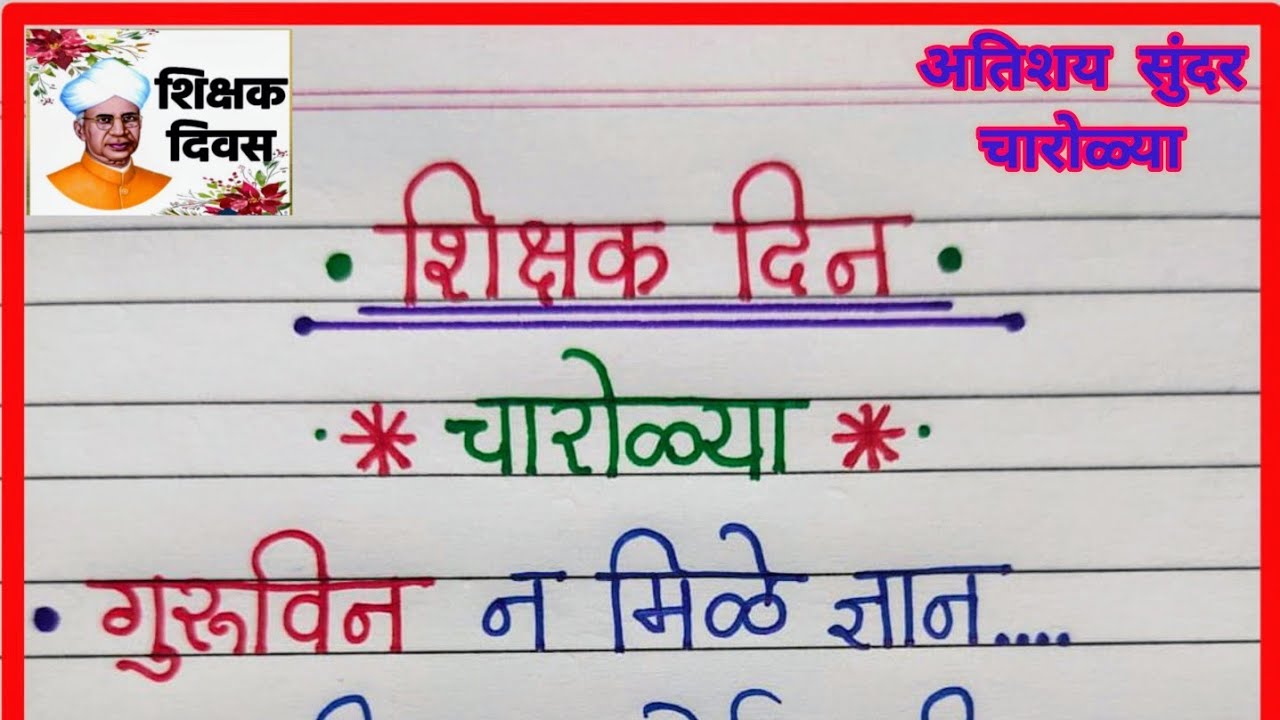 शिक्षक
दिवस
अतिशय सुंदर
चारोळ्या
शिक्षक दिन
चारोळ्या
गुरूविन न मिळे ज्ञान....